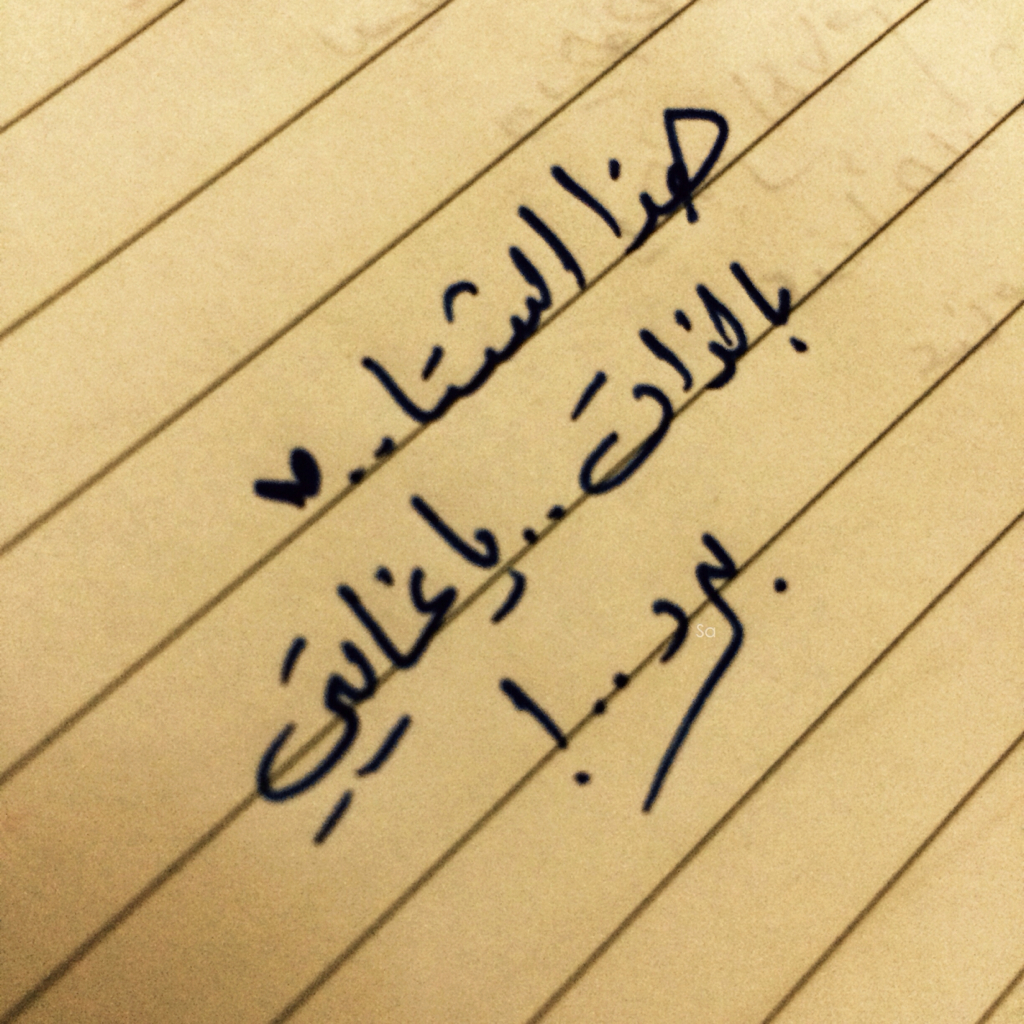 هذا الشتا..♥
بالذات.. يا غاليتي
برد..!
Sa